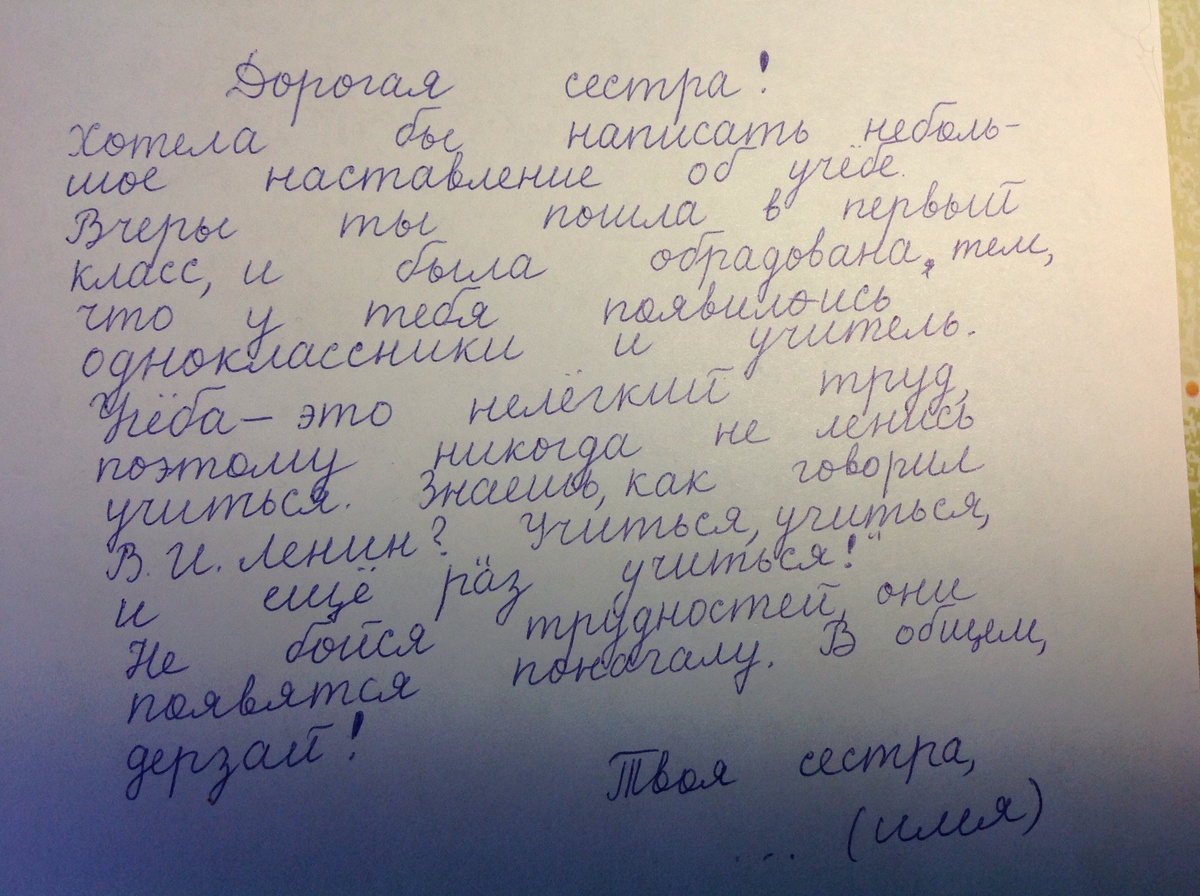 Дорогая сестра!
Хотела бы написать неболь-
шое наставление об учёбе.
Вчеры ты пошла в первый
класс, и была обрадована, тем,
что у тебя появились
одноклассники и учитель.
Учёба – это нелёгкий труд,
поэтому никогда не ленись
учиться. Знаешь, как говорил
В. И. Ленин? Учиться, учиться,
и ещё раз учиться!"
Не бойся трудностей, они
появятся поначалу. В общем,
дерзай!
Твоя сестра,
... (имя)